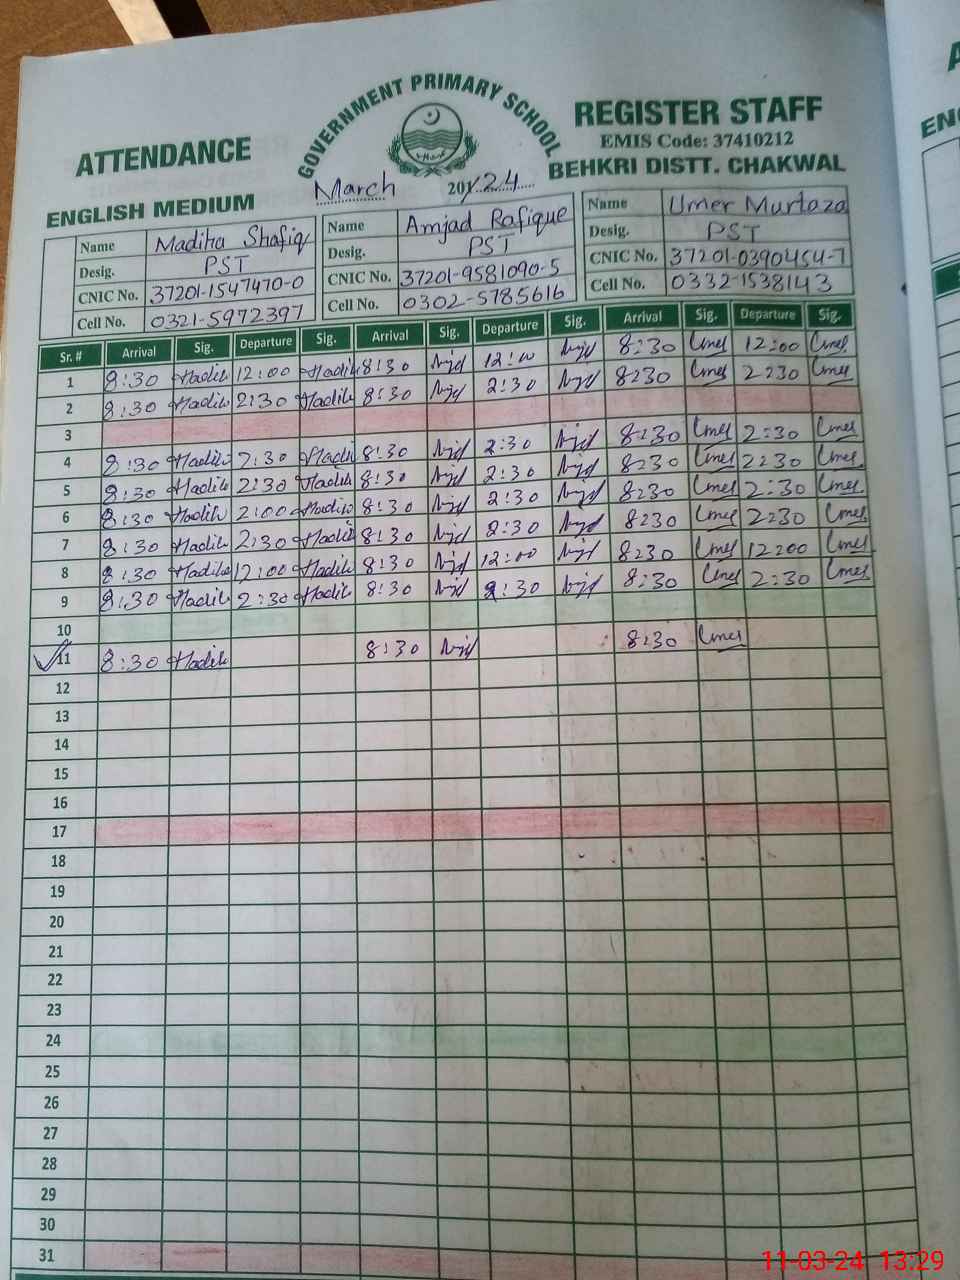 GOVERNMENT PRIMARY SCHOOL
ATTENDANCE REGISTER STAFF
EMIS Code: 37410212
BEHKRI DISTT. CHAKWAL
ENGLISH MEDIUM March 20 24
Name Madiha Shafiq Name Amjad Rafique Name Umer Murtaza
Desig. PST Desig. PST Desig. PST
CNIC No. 37201-1547470-0 CNIC No. 37201-9581090-5 CNIC No. 37201-0390454-7
Cell No. 0321-5972397 Cell No. 0302-5785616 Cell No. 0332-1538143
Sr. # Arrival Sig. Departure Sig. Arrival Sig. Departure Sig. Arrival Sig. Departure Sig.
1 8:30 12:00 8:30 12:00 8:30 12:00
2 8:30 2:30 8:30 2:30 8:30 2:30
3
4 8:30 2:30 8:30 2:30 8:30 2:30
5 8:30 2:30 8:30 2:30 8:30 2:30
6 8:30 2:00 8:30 2:30 8:30 2:30
7 8:30 2:30 8:30 2:30 8:30 2:30
8 8:30 12:00 8:30 12:00 8:30 12:00
9 8:30 2:30 8:30 2:30 8:30 2:30
10
11 8:30 8:30 8:30
12
13
14
15
16
17
18
19
20
21
22
23
24
25
26
27
28
29
30
31
11-03-24 13:29